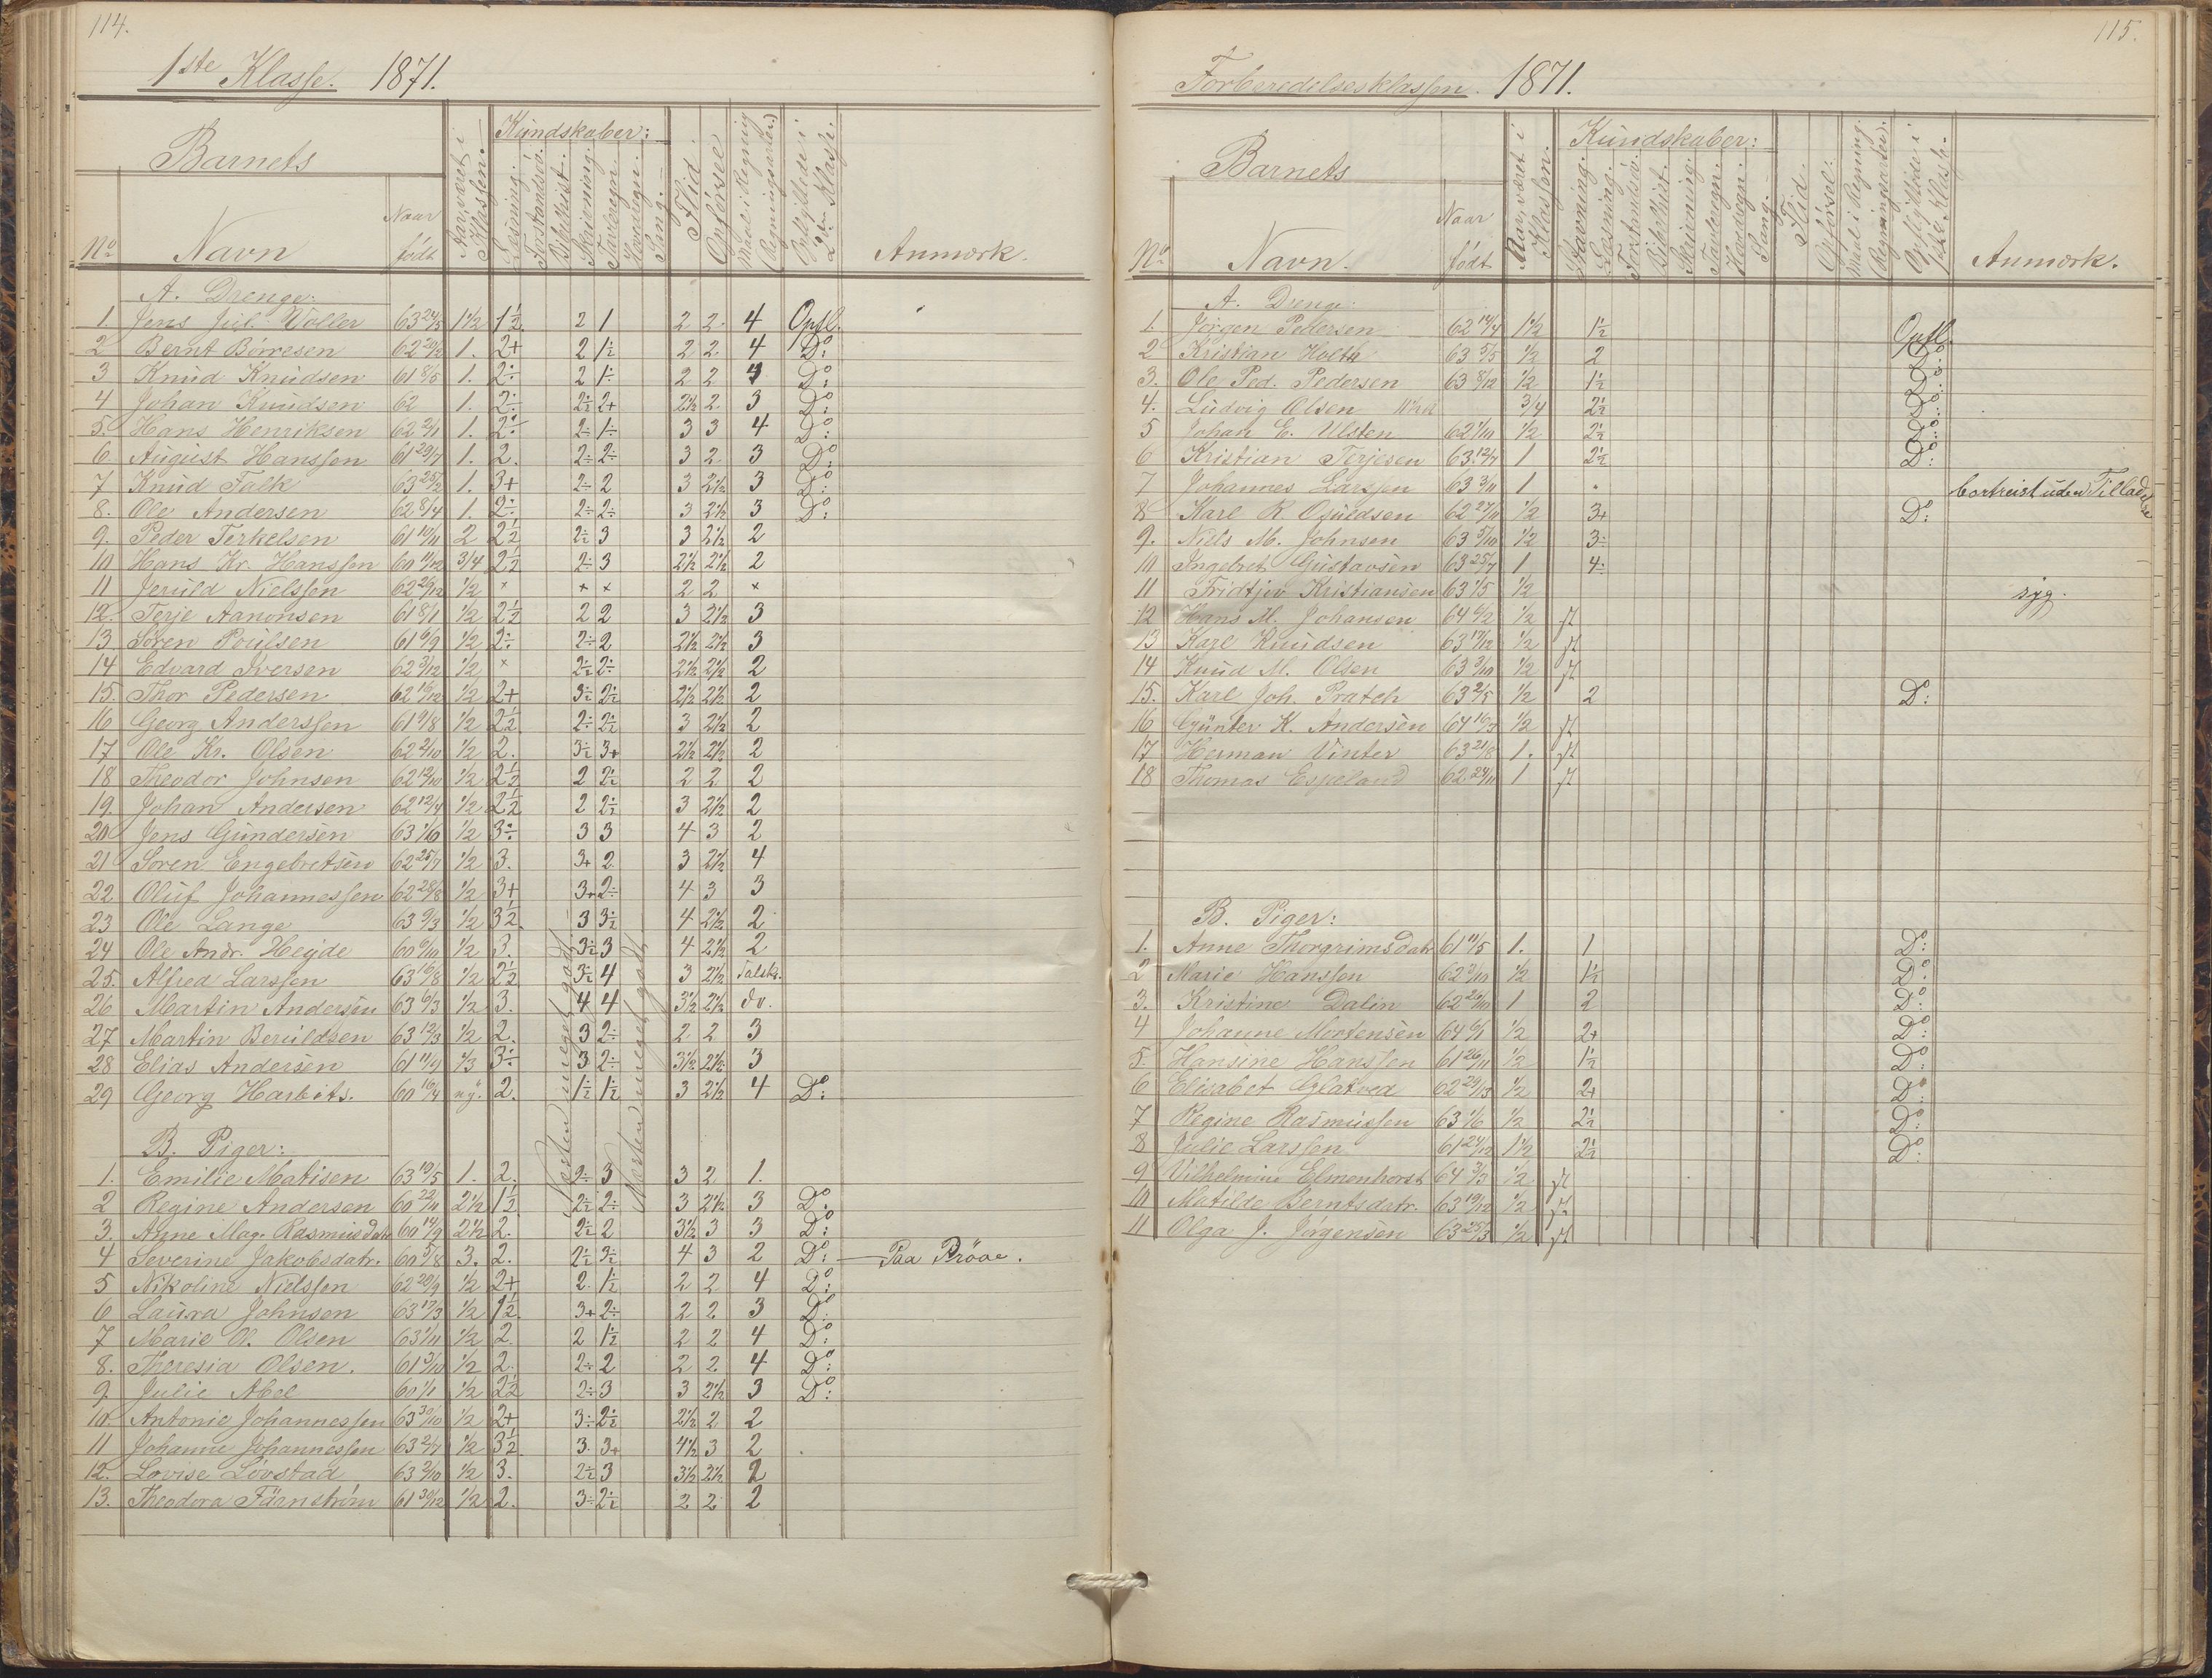 114.
1ste Klasse. 1871.
Barnets
No Navn Naar født Aar været i Klassen. Kundskaber: Læsning. Forstandsöv. Bibelhist. Skrivning. Tavleregn. Hovedregn. Sang. Flid. Opførsel Maal i Regning (Regningsarter.) Opflyttede i 2den Klasse. Anmærk.
A. Drenge:
1. Jens Jul. Voller 63 24/5 1 1/2 1 1/2 2 1 2 2 4 Opfl.
2 Bernt Børresen 62 20/2 1. 2+ 2 1÷ 2 2 4 Do:
3 Knud Knudsen 61 8/5 1. 2÷ 2 1÷ 2 2 4 Do:
4 Johan Knudsen 62 1. 2÷ 2 1/2 2+ 2 1/2 2 3 Do:
5. Hans Henriksen 62 2/11 1. 2÷ 2÷ 1÷ 3 3 4 Do:
6 August Hanssen 61 29/7 1. 2. 2÷ 2÷ 3 2 3 Do:
7 Knud Falk 63 25/2 1. 3+ 2÷ 2 3 2 1/2 3 Do:
8. Ole Andersen 62 8/4 1. 2÷ 2÷ 2÷ 3 2 1/2 3 Do:
9. Peder Terkelsen 61 10/11 2 2 1/2 2 1/2 3 3 2 1/2 2
10 Hans Kr. Hanssen 60 11/12 3/4 2 1/2 2÷ 3 2 1/2 2 1/2 2
11 Jeruld Nielssen 62 26/12 1/2 × × × 2 2 ×
12. Terje Aanonsen 61 8/1 1/2 2 1/2 2 2 3 2 1/2 3
13 Søren Poulsen 61 6/9 1/2 2÷ 2÷ 2 2 1/2 2 1/2 3
14 Edvard Iversen 62 3/12 1/2 × 2 1/2 2÷ 2 1/2 2 1/2 2
15. Thor Pedersen 62 16/12 1/2 2+ 3 1/2 2 1/2 2 1/2 2 1/2 2
16 Georg Anderssen 61 9/8 1/2 2 1/2 2÷ 2 1/2 3 2 1/2 2
17 Ole Kr. Olsen 62 2/10 1/2 2. 3 1/2 3+ 2 1/2 2 1/2 2
18 Theodor Johnsen 62 12/10 1/2 2 1/2 2 2 1/2 2 2 2
19. Johan Andersen 62 12/4 1/2 2 1/2 2 2 1/2 3 2 1/2 2
20 Jens Gundersen 63 1/10 1/2 3÷ 3 3 4 3 2
21 Søren Engebretsen 62 25/7 1/2 3. 3+ 2 3 2 1/2 4
22 Oluf Johannessen 62 28/8 1/2 3+ 3+ 2÷ 4 3 3
23 Ole Lange 63 9/3 1/2 3 1/2 3 3 1/2 4 2 1/2 2
24 Ole Andr. Hejde 60 6/10 1/2 3. 3 1/2 3 4 2 1/2 2
25. Alfred Larssen 63 16/8 1/2 2 1/2 3 1/2 4 3 2 1/2 Talskr.
26 Martin Andersen 63 6/3 1/2 3. 4 4 3 1/2 2 1/2 do.
27 Martin Beruldsen 63 12/3 1/2 2. 3 2÷ 2 2 3
28 Elias Andersen 61 11/4 4/3 3÷ 3 2÷ 3 1/2 2 1/2 3
29 Georg Harbits. 60 16/4 ny. 2. 1 1/2 1 1/2 3 2 1/2 4 Do:
Næsten meget godt
Næsten meget godt
B. Piger:
1. Emilie Matisen 63 10/5 1. 2. 2÷ 3 3 2 1.
2 Regine Andersen 60 22/11 2 1/2 1 1/2 2 1/2 2÷ 3 2 1/2 3 Do:
3. Anne Mag. Rasmusdatr 60 14/9 2 1/2 2. 2 1/2 2 3 1/2 3 3 Do:
4 Severine Jakobsdatr. 60 5/8 3. 2. 2 1/2 3 1/2 4 3 2 Do: Paa Prøve.
5 Nikoline Nielssen 62 20/9 1/2 2+ 2. 1 1/2 2 2 4 Do:
6 Laura Johnsen 63 17/3 1/2 1 1/2 3+ 2÷ 2 2 3 Do:
7 Marie O. Olsen 63 1/11 1/2 2. 2 1 1/2 2 2 4 Do:
8. Theresia Olsen. 61 3/10 1/2 2. 2÷ 2 2 2 4 Do:
9 Julie Abel 60 1/1 1/2 2 1/2 2÷ 3 3 2 1/2 3 Do:
10. Antonie Johannessen 63 30/10 1/2 2+ 3÷ 2 1/2 2 1/2 2 2
11 Johanne Johannessen 63 2/7 1/2 3 1/2 3. 3+ 4 1/2 3 2
12. Lovise Løvstad 63 2/10 1/2 3. 2 1/2 3 3 1/2 2 1/2 2
13. Theodora Färnström 61 30/12 1/2 2. 3÷ 2 1/2 2 2 2
115.
Forberedelsesklassen. 1871.
Barnets
No Navn. Naar født Aar været i Klassen. Kundskaber: Stavning. Læsning. Forstandsöv. Bibelhist. Skrivning. Tavleregn. Hovedregn. Sang. Flid. Opførsel: Maal i Regning. (Regningsarter). Opflyttede i 1ste Klasse. Anmærk.
A. Drenge:
1. Jørgen Pedersen 62 14/4 1 1/2 1 1/2 Opfl.
2 Kristian Holth 63 5/5 1/2 2 Do:
3. Ole Ped. Pedersen 63 8/12 1/2 1 1/2 Do:
4. Ludvig Olsen 3/4 2 1/2 Do:
5 Johan E. Ulsten 62 1/10 1/2 2 1/2 Do:
6 Kristian Terjesen 63 12/7 1 2 1/2 Do:
7 Johannes Larssen 63 3/11 1 bortreist uden Tilladelse
8 Karl R. Ouldsen 62 27/11 1/2 3+ Do:
9. Niels M. Johnsen 63 5/10 1/2 3÷
10 Ingebret Gustavsen 63 25/7 1 4÷
11 Fridtjov Kristiansen 63 1/5 1/2 syg.
12 Hans M. Johansen 64 6/2 1/2 st
13 Karl Knudsen 63 17/12 1/2 st
14 Knud M. Olsen 63 3/10 1/2 st
15. Karl Joh. Pratch 63 2/5 1/2 2 Do:
16 Günter K. Andersen 64 16/3 1/2 st
17 Herman Vinter 63 21/8 1. st
18 Thomas Espeland 62 24/11 1 st
B. Piger:
1. Anne Thorgrimsdatr 61 11/5 1. 1 Do:
2 Marie Hanssen 62 3/10 1/2 1 1/2 Do:
3. Kristine Dalin 62 26/10 1 2 Do:
4 Johanne Mortensen 64 6/1 1/2 2+ Do:
5. Hansine Hanssen 61 26/11 1/2 1 1/2 Do:
6 Elisabet Glatved 62 29/13 1/2 2+ Do:
7 Regine Rasmussen 63 1/6 1/2 2 1/2 Do:
8 Julie Larssen 61 24/12 1 1/2 2 1/2 Do:
9 Vilhelmine Elmenhorst 64 3/3 1/2 st
10 Matilde Berntsdatr. 63 19/12 1/2 st
11 Olga J. Jørgensen 63 25/3 1/2 st